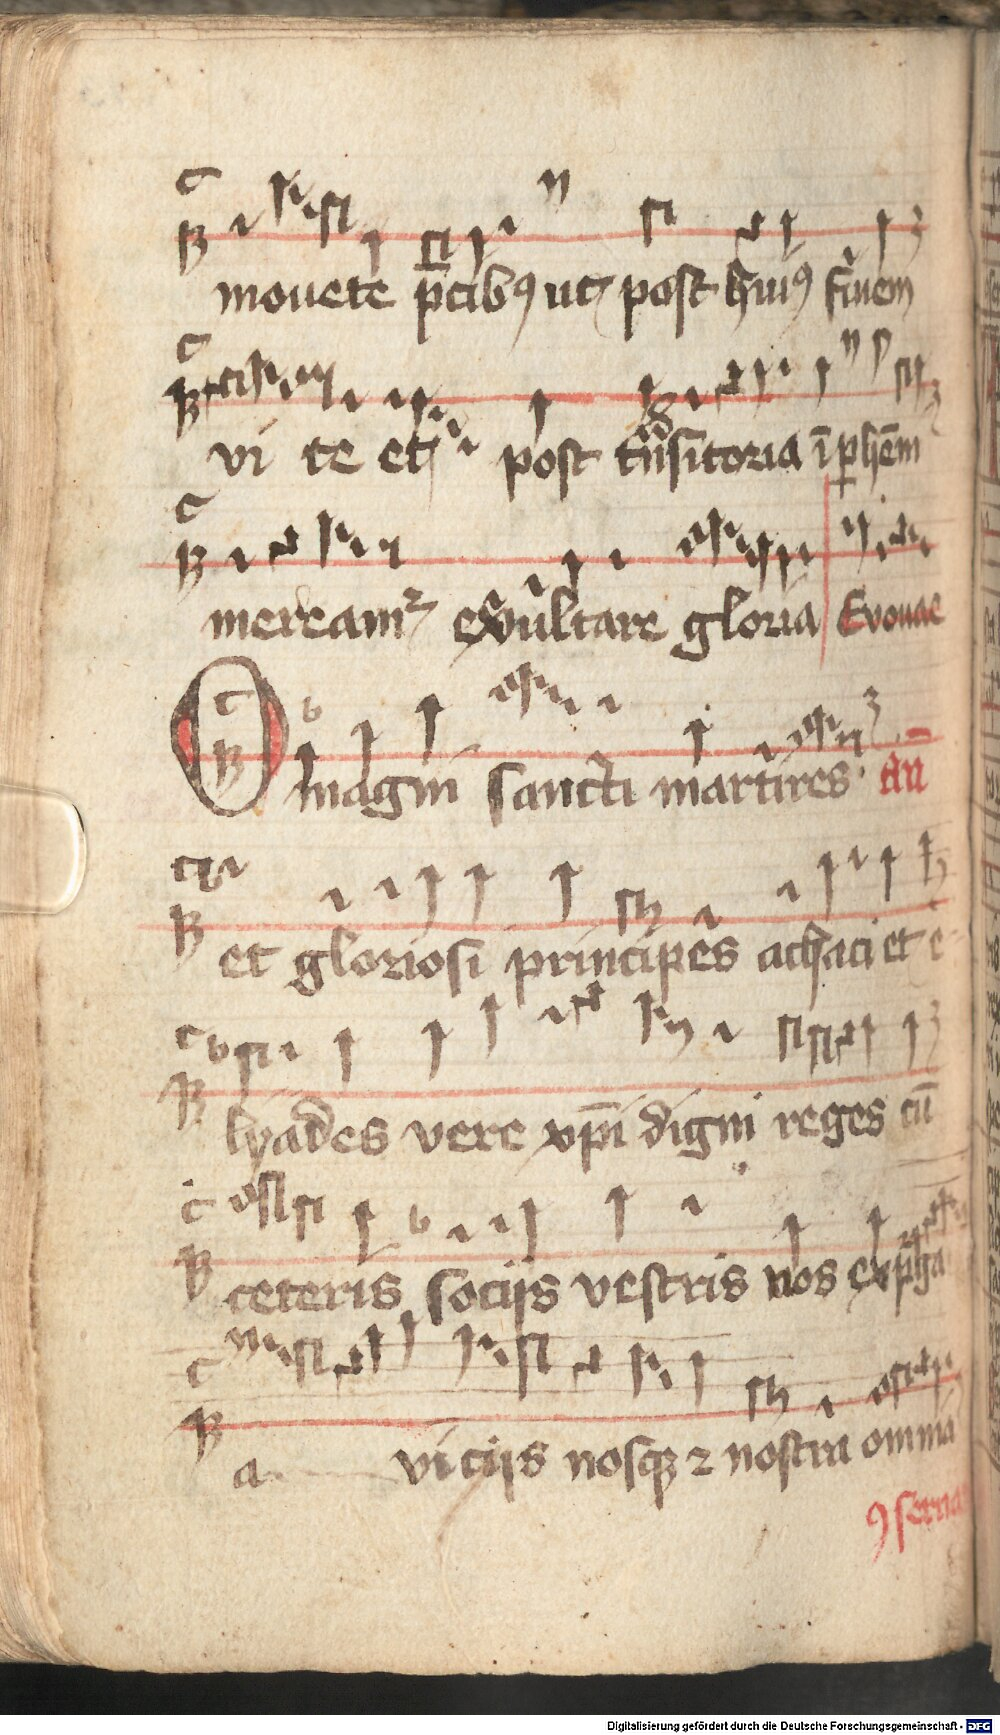 mouete p̄cib9 ut post h̄ui9 t̄minem
vi te et post t̄nsitoria ī p̄hēm
mereamr exultare gloria Evouae
O magni sancti martires añ
et gloriosi principes achaci et e
lyades vere xp̄i digni reges cū
ceteris socijs vestris nos expurga
a vicijs nosqz 2 nostra omnia
9serua
Digitalisierung gefördert durch die Deutsche Forschungsgemeinschaft - DFG